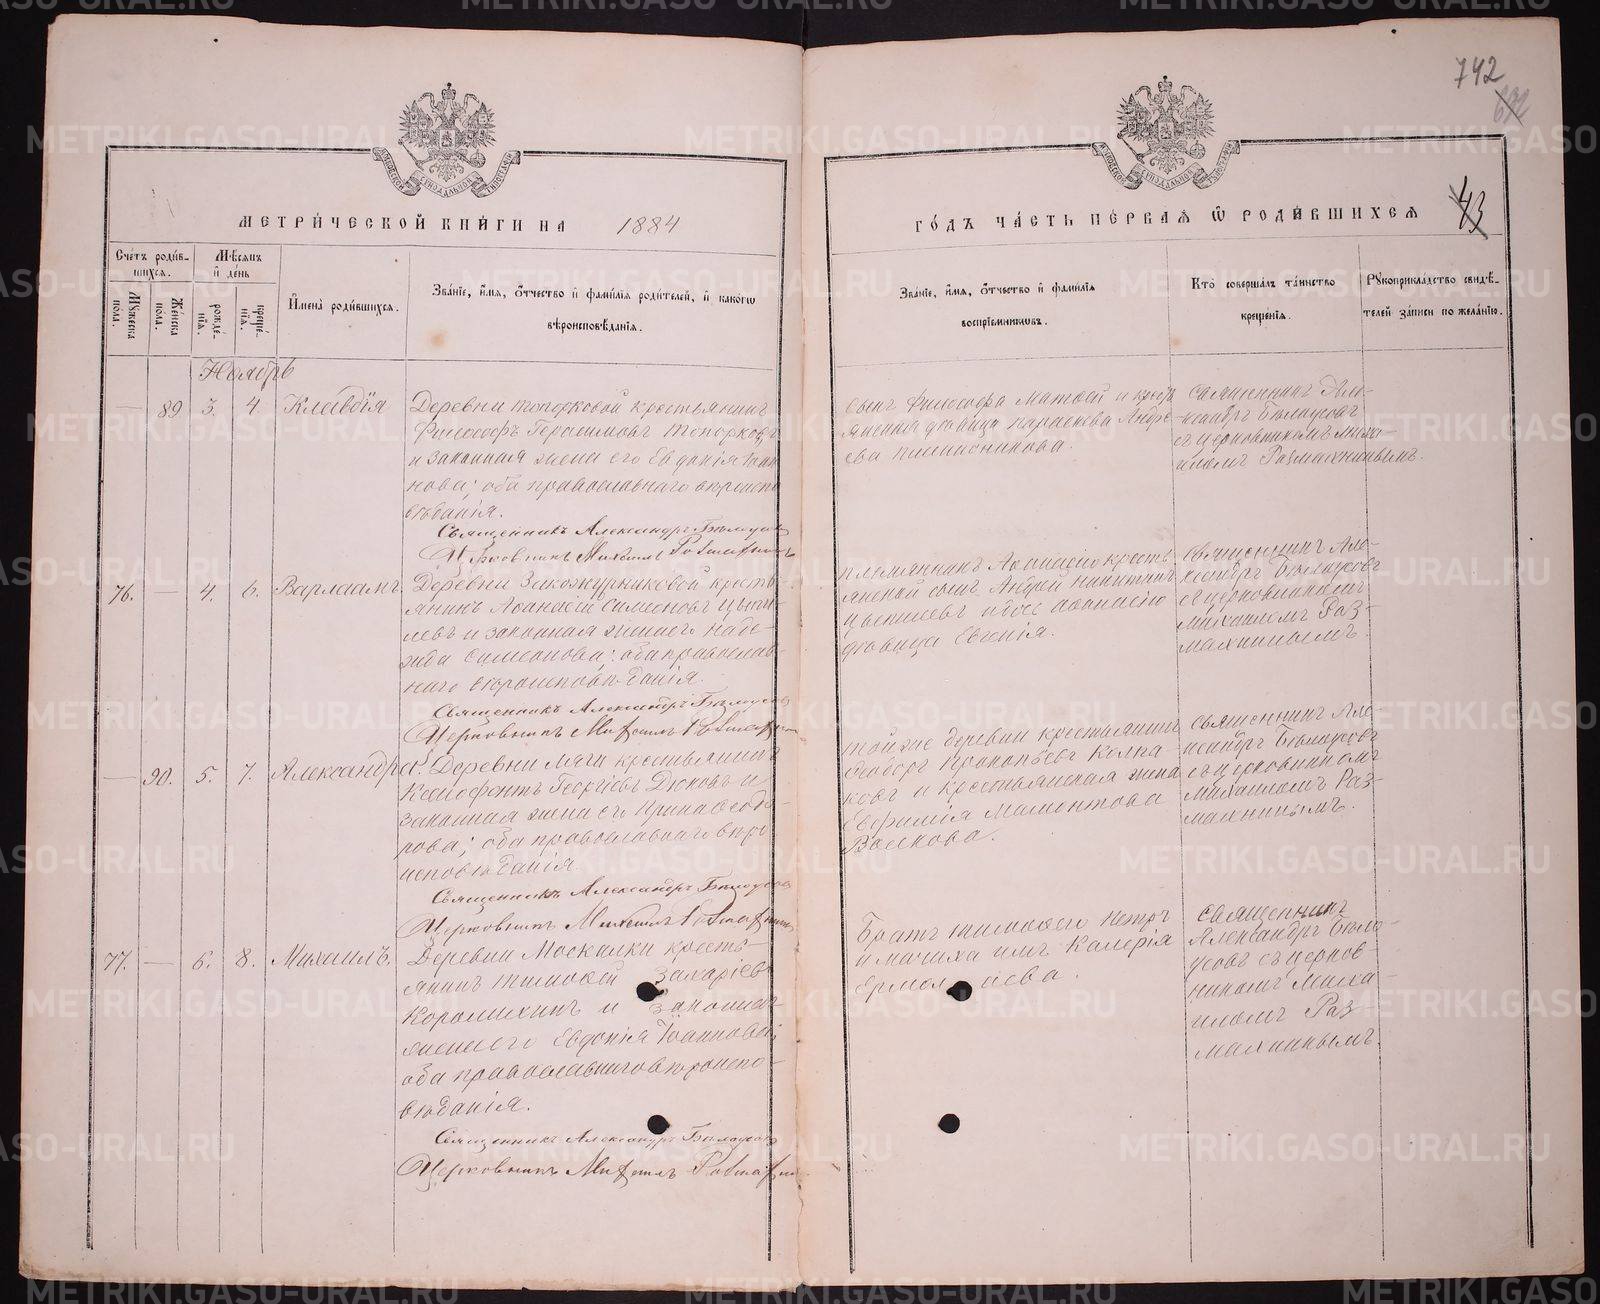 742
632
43
МОСКОВСКОЙ СУНОДАЛЬНОЙ ТИПОГРАФІИ
МЕТРИ́ЧЕСКОЙ КНИ́ГИ НА 1884
ГО́ДЪ ЧА́СТЬ ПЕ́РВАЯ Ѿ РОДИ́ВШИХСЯ
Сче́тъ роди́в-
шихся.
Мѣсяцъ
и҆ де́нь
Мꙋжеска
пола.
Же́нска
пола.
рожде́-
нїѧ.
креще́-
нїѧ.
И҆мена̀ роди́вшихся.
Зва́нїе, и҆́мя, Ѻ҆́тчество и҆ фами́лїя роди́телей, и҆ како́гѡ
вѣроисповѣ́данїя.
Зва́нїе, и҆́мя, Ѻ҆́тчество и҆ фами́лїя
воспрїе́мникѡвъ.
Кто̀ соверша́лъ та́инство
креще́нїя.
Рꙋкоприкла́дство свидѣ́-
телей за́писи по жела́нїю.
Ноябрь
— 89 3. 4 Клавдія
Деревни Топорковой крестьянинъ
Философъ Герасимовъ Топорковъ
и законная жена его Евдокія Іоан
нова; оба православнаго вѣроиспо
вѣданія.
Священникъ Александръ Бѣлоусовъ
Церковникъ Михаилъ Размахнинъ
сынъ Философа Матвей и крест
янская девица Параскева Андре
ева Пшеничникова.
священникъ Алек-
сандръ Бѣлоусовъ
съ церковникомъ Миха-
иломъ Размахнинымъ.
76. — 4. 6. Варлаамъ.
Деревни Закожурниковой кресть-
янинъ Афанасій Симеоновъ
и законная жена его Наде-
жда Симеонова; оба православ-
наго вѣроисповѣданія.
Священникъ Александръ Бѣлоусовъ
Церковникъ Михаилъ Размахнинъ
племянникъ Афанасію кресть
янскій сынъ Андрей Никитинъ
Афанасію
девица Евгенія.
священникъ Але-
ксандръ Бѣлоусовъ
съ церковникомъ
Михаиломъ Раз-
махнинымъ.
— 90. 5. 7. Александра.
Деревни Ляги крестьянинъ
Ксенофонтъ Георгіевъ Дюковъ и
законная жена его Ирина Ѳеодо-
рова; оба православнаго вѣро
исповѣданія.
Священникъ Александръ Бѣлоусовъ
Церковникъ Михаилъ Размахнинъ
той же деревни крестьянинъ
Ѳеодоръ Прокопьевъ Колпа-
ковъ и крестьянская жена
Евфимія Мамонтова
Волкова.
священникъ Але-
ксандръ Бѣлоусовъ
съ церковникомъ
Михаиломъ Раз-
махнинымъ.
77. — 6. 8. Михаилъ.
Деревни Москалки кресть-
янинъ Тимофей Захаріевъ
Коромыхинъ и законная
жена его Евдокія Іоаннова;
оба православнаго вѣроиспо-
вѣданія.
Священникъ Александръ Бѣлоусовъ
Церковникъ Михаилъ Размахнинъ
Братъ Тимофея Петръ
и мачиха имъ Калерія
Ермолаева.
священникъ
Александръ Бѣло-
усовъ съ церков-
никомъ Миха-
иломъ Раз-
махнинымъ.
METRIKI.GASO-URAL.RU